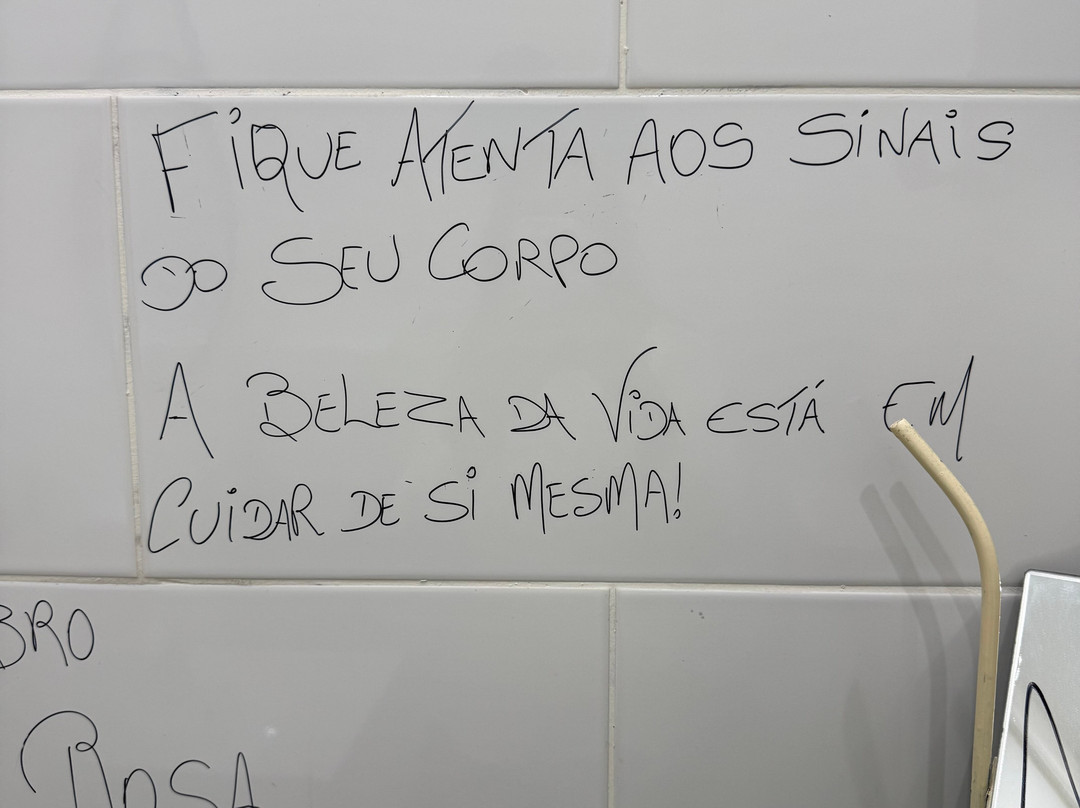 FiQUE ATENTA AOS SiNAiS
DO SEU CORPO
A BELEZA DA ViDA ESTÁ EM
CUiDAR DE Si MESMA!
BRO
ROSA